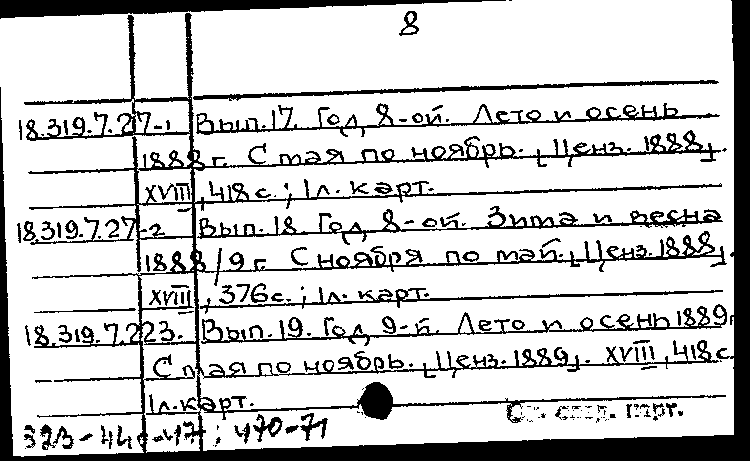 8
18.319.7.27-1 Вып.17. Год 8-ой. Лето и осень
1888 г. С мая по ноябрь. [Ценз. 1888].
XVIII, 418 с.; 1 л. карт.
18.319.7.27-2 Вып. 18. Год 8-ой. Зима и весна
1888/9 г. С ноября по май. [Ценз. 1888].
XVIII, 376 с.; 1 л. карт.
18.319.7.223. Вып. 19. Год 9-й. Лето и осень 1889 г.
С мая по ноябрь. [Ценз. 1889]. XVIII, 418 с.
1 л. карт.
470-71